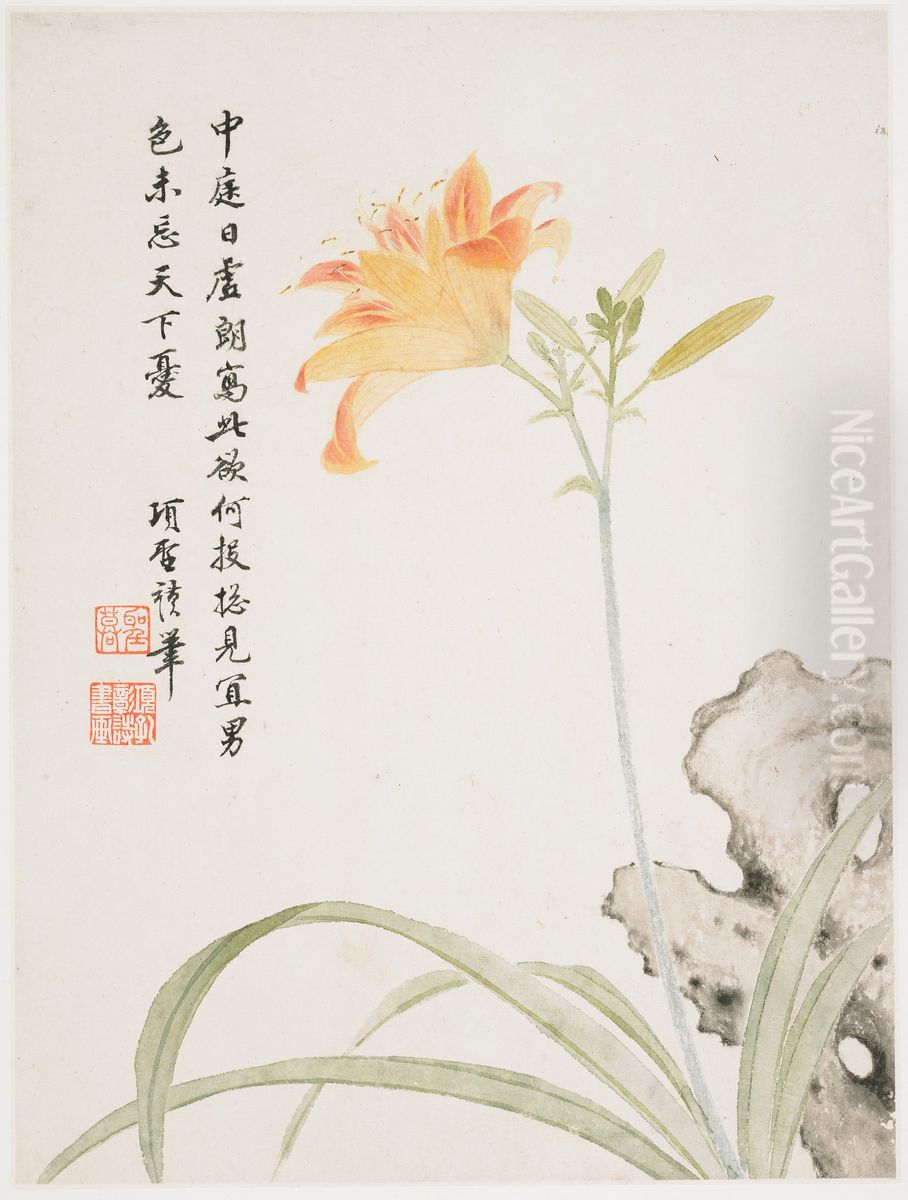 中庭日虛朗寫此欲何投總見宜男
色未忘天下憂
項聖謨筆
項孔彰詩書畫
NiceArtGallery.com